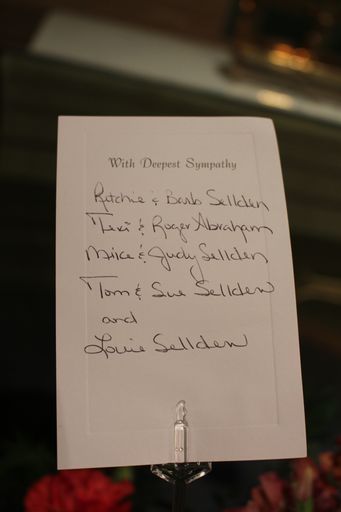 With Deepest Sympathy
Ritchie & Barb Sellden
Teri & Roger Abraham
Mike & Judy Sellden
Tom & Sue Sellden
and
Louie Sellden